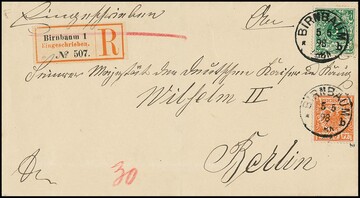 Eingeschrieben
An
Birnbaum 1
Eingeschrieben.
№ 507.
R
BIRNBAUM
5 5
98
b
Seiner Majestät den Deutschen Kaiser
Wilhelm II
BIRNBAUM
5 5
98
b
Berlin
30